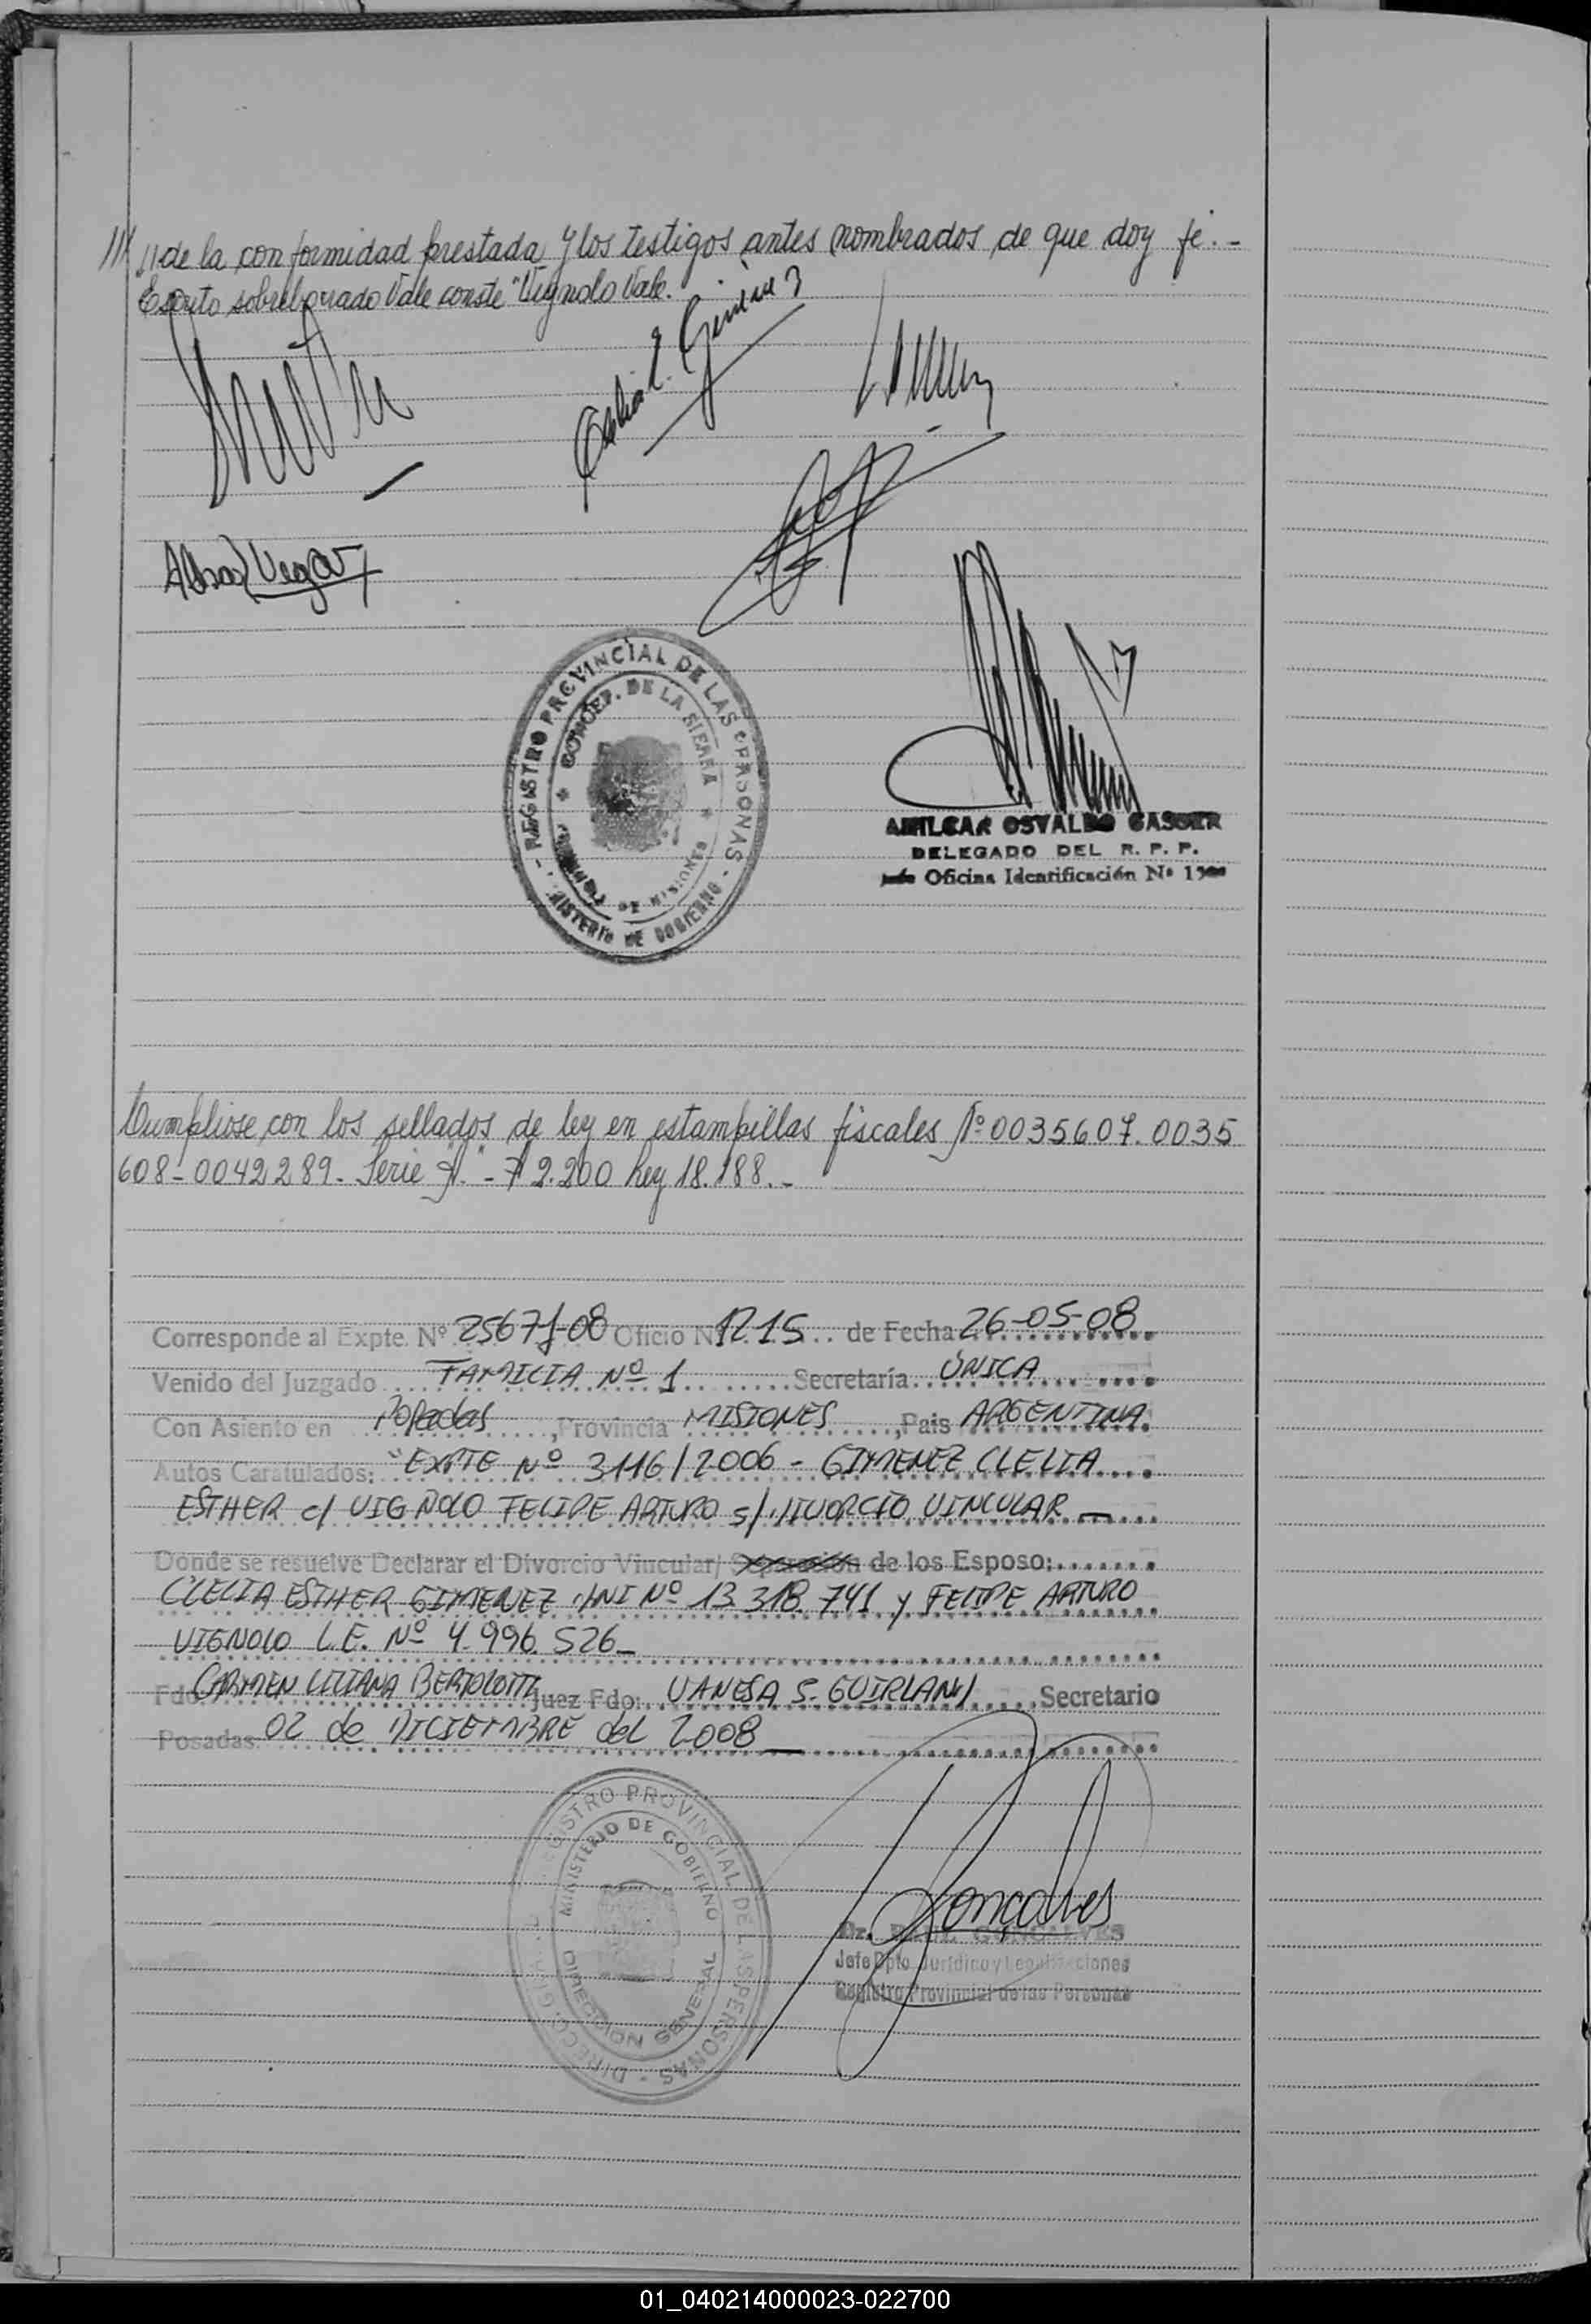 /// // de la conformidad prestada y los testigos antes nombrados de que doy fé.-
Escrito sobreborrado Vale conste "Vignolo Vale.
Clelia E. Gimenez
Vega
REGISTRO PROVINCIAL DE LAS PERSONAS - MINISTERIO DE GOBIERNO -
CONCEP. DE LA SIERRA
DE MISIONES
AMILCAR OSVALDO GASSER
DELEGADO DEL R. P. P.
Jefe Oficina Identificación Nº
Cumpliose con los sellados de ley en estampillas fiscales Nº 0035607. 0035
608-0042289- Serie "A" - $ 2.200 Ley 18.188.-
Corresponde al Expte. Nº 2567-J-08 Oficio Nº 1215 de Fecha 26-05-08
Venido del Juzgado FAMILIA Nº 1 Secretaría ÚNICA
Con Asiento en Posadas, Provincia MISIONES, Pais ARGENTINA
Autos Caratulados: "EXPTE Nº 3116/2006 - GIMENEZ CLELIA
ESTHER c/ VIGNOLO FELIPE ARTURO s/ DIVORCIO VINCULAR —
Donde se resuelve Declarar el Divorcio Vincular/ Separación de los Esposo:
CLELIA ESTHER GIMENEZ DNI Nº 13.318.741 y FELIPE ARTURO
VIGNOLO L.E. Nº 4.996.526_
Fdo: CARMEN LILIANA BERTOLOTTI Juez Fdo: VANESA S. GUIRLAND Secretario
Posadas: 02 de DICIEMBRE del 2008_
REGISTRO PROVINCIAL DE LAS PERSONAS - DIRECC. GRAL.
MINISTERIO DE GOBIERNO
DIRECCION GENERAL
Gonçalves
Dr. RAUL GONCALVES
Jefe Dpto. Jurídico y Legalizaciones
Registro Provincial de las Personas
01_040214000023-022700